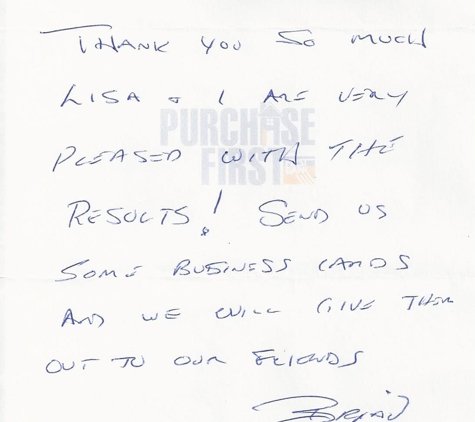 THANK YOU SO MUCH
LISA & I ARE VERY
PURCHASE
PLEASED WITH THE
FIRST
RESULTS! SEND US
SOME BUSINESS CARDS
AND WE WILL GIVE THEM
OUT TO OUR FRIENDS
BRIAN